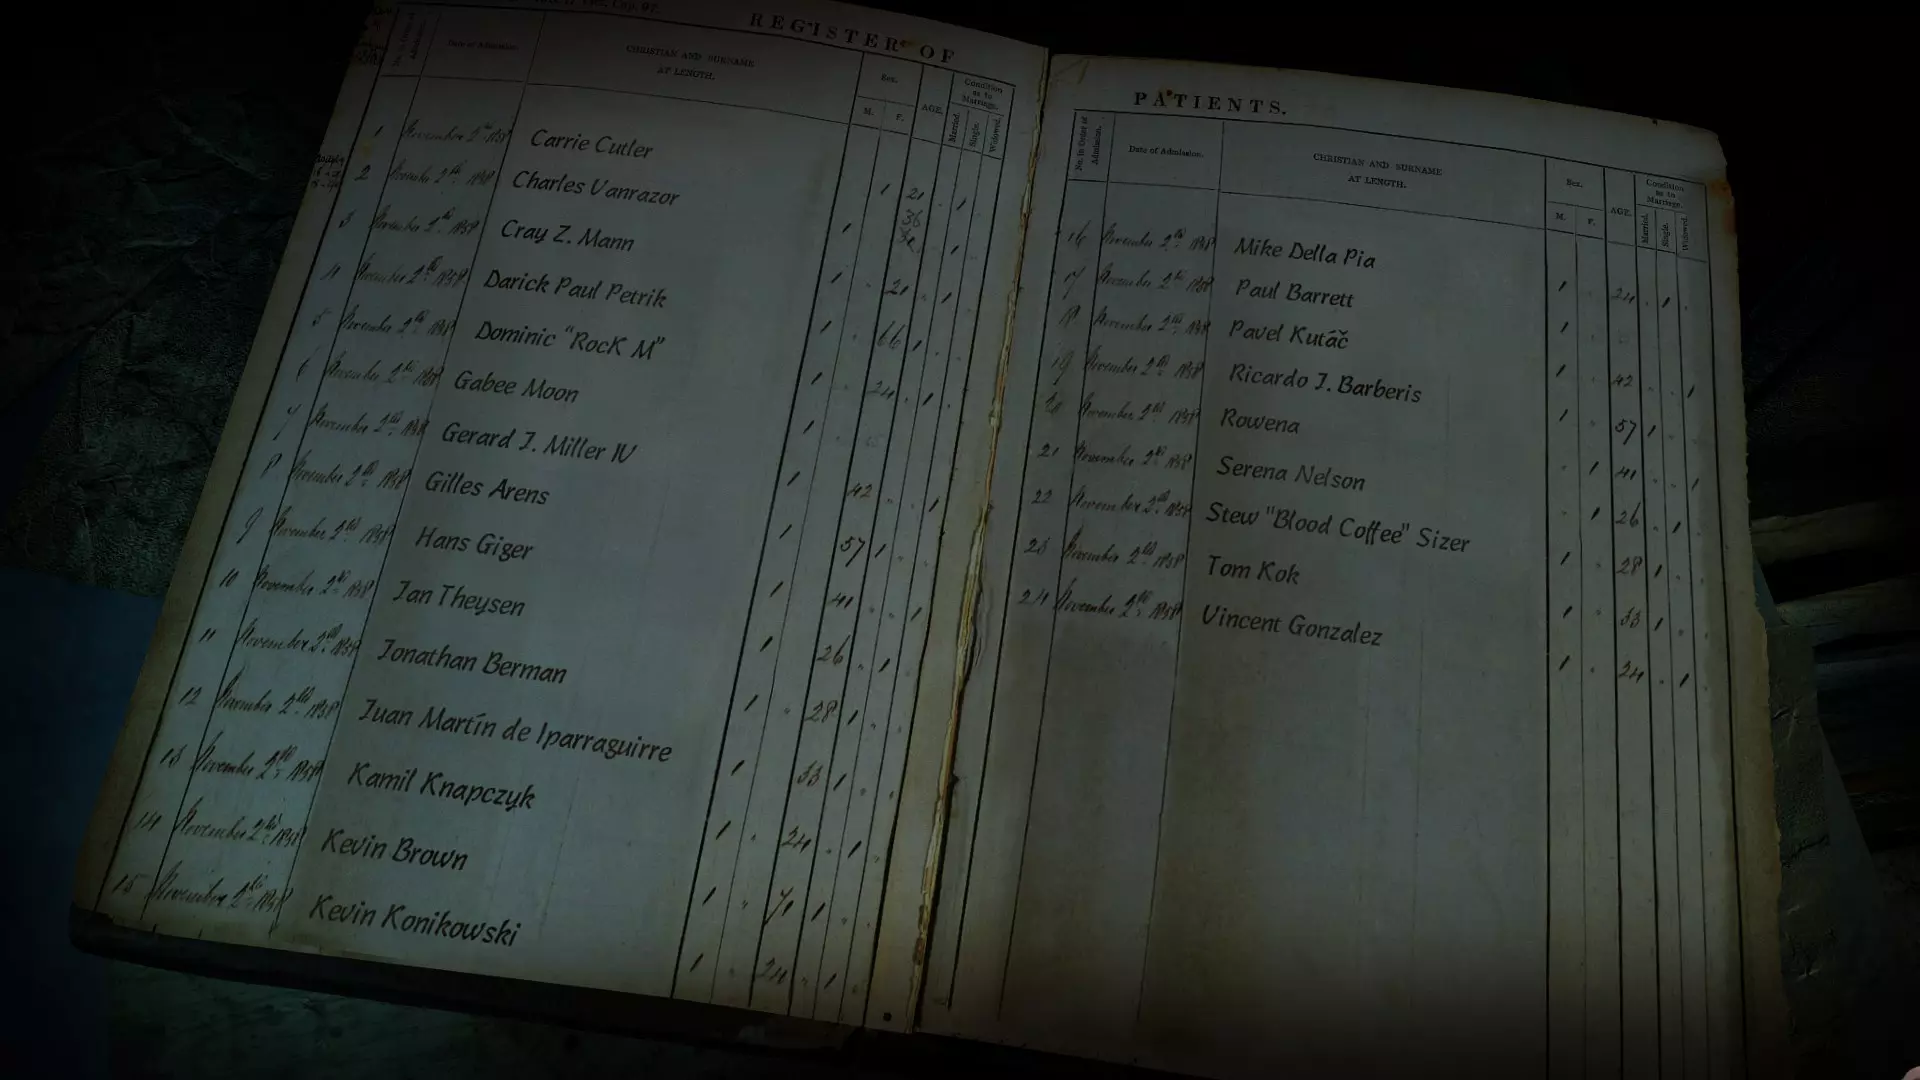 REGISTER OF
Date of Admission.
CHRISTIAN AND SURNAME
AT LENGTH.
Sex.
M. F.
AGE.
Condition
as to
Marriage.
Married. Single. Widowed.
1 November 2nd 1858 Carrie Cutler
2 November 2nd 1858 Charles Vanrazor 1 21 1
3 November 2nd 1858 Cray Z. Mann 1 1
4 November 2nd 1858 Darick Paul Petrik 1 21 1
5 November 2nd 1858 Dominic "RocK M" 1 66 1
6 November 2nd 1858 Gabee Moon 1 24 1
7 November 2nd 1858 Gerard J. Miller IV 1
8 November 2nd 1858 Gilles Arens 1 42 1
9 November 2nd 1858 Hans Giger 1 57 1
10 November 2nd 1858 Jan Theysen 1 41 1
11 November 2nd 1858 Jonathan Berman 1 26 1
12 November 2nd 1858 Juan Martín de Iparraguirre 1 28 1
13 November 2nd 1858 Kamil Knapczyk 1 33 1
14 November 2nd 1858 Kevin Brown 1 24 1
15 November 2nd 1858 Kevin Konikowski 1 1
1 24 1
PATIENTS.
No. in Order of
Admission.
Date of Admission.
CHRISTIAN AND SURNAME
AT LENGTH.
Sex.
M. F.
AGE.
Condition
as to
Marriage.
Married. Single. Widowed.
16 November 2nd 1858 Mike Della Pia
17 November 2nd 1858 Paul Barrett 1 24 1
18 November 2nd 1858 Pavel Kutáč 1
19 November 2nd 1858 Ricardo J. Barberis 1 42 1
20 November 2nd 1858 Rowena 1 57 1
21 November 2nd 1858 Serena Nelson 1 41 1
22 November 2nd 1858 Stew "Blood Coffee" Sizer 1 26 1
23 November 2nd 1858 Tom Kok 1 28 1
24 November 2nd 1858 Vincent Gonzalez 1 33 1
1 24 1